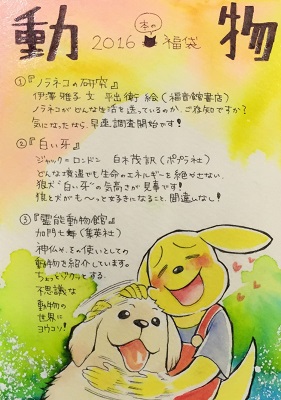 動物
2016 本の 福袋
①『ノラネコの研究』
伊澤雅子 文 平出衛 絵(福音館書店)
ノラネコがどんな生活を送っているのか、ご存知ですか?
気になったなら、早速調査開始です!
②『白い牙』
ジャック=ロンドン 白木茂訳(ポプラ社)
どんな境遇でも生命のエネルギーを絶やさない
狼犬“白い牙”の気高さが見事です!
狼と犬がも~っと好きになること、間違いなし!
③『霊能動物館』
加門七海(集英社)
神仏や、その使いとしての
動物を紹介しています。
ちょっとゾクッとする、
不思議な
動物の
世界に
ヨウコソ!